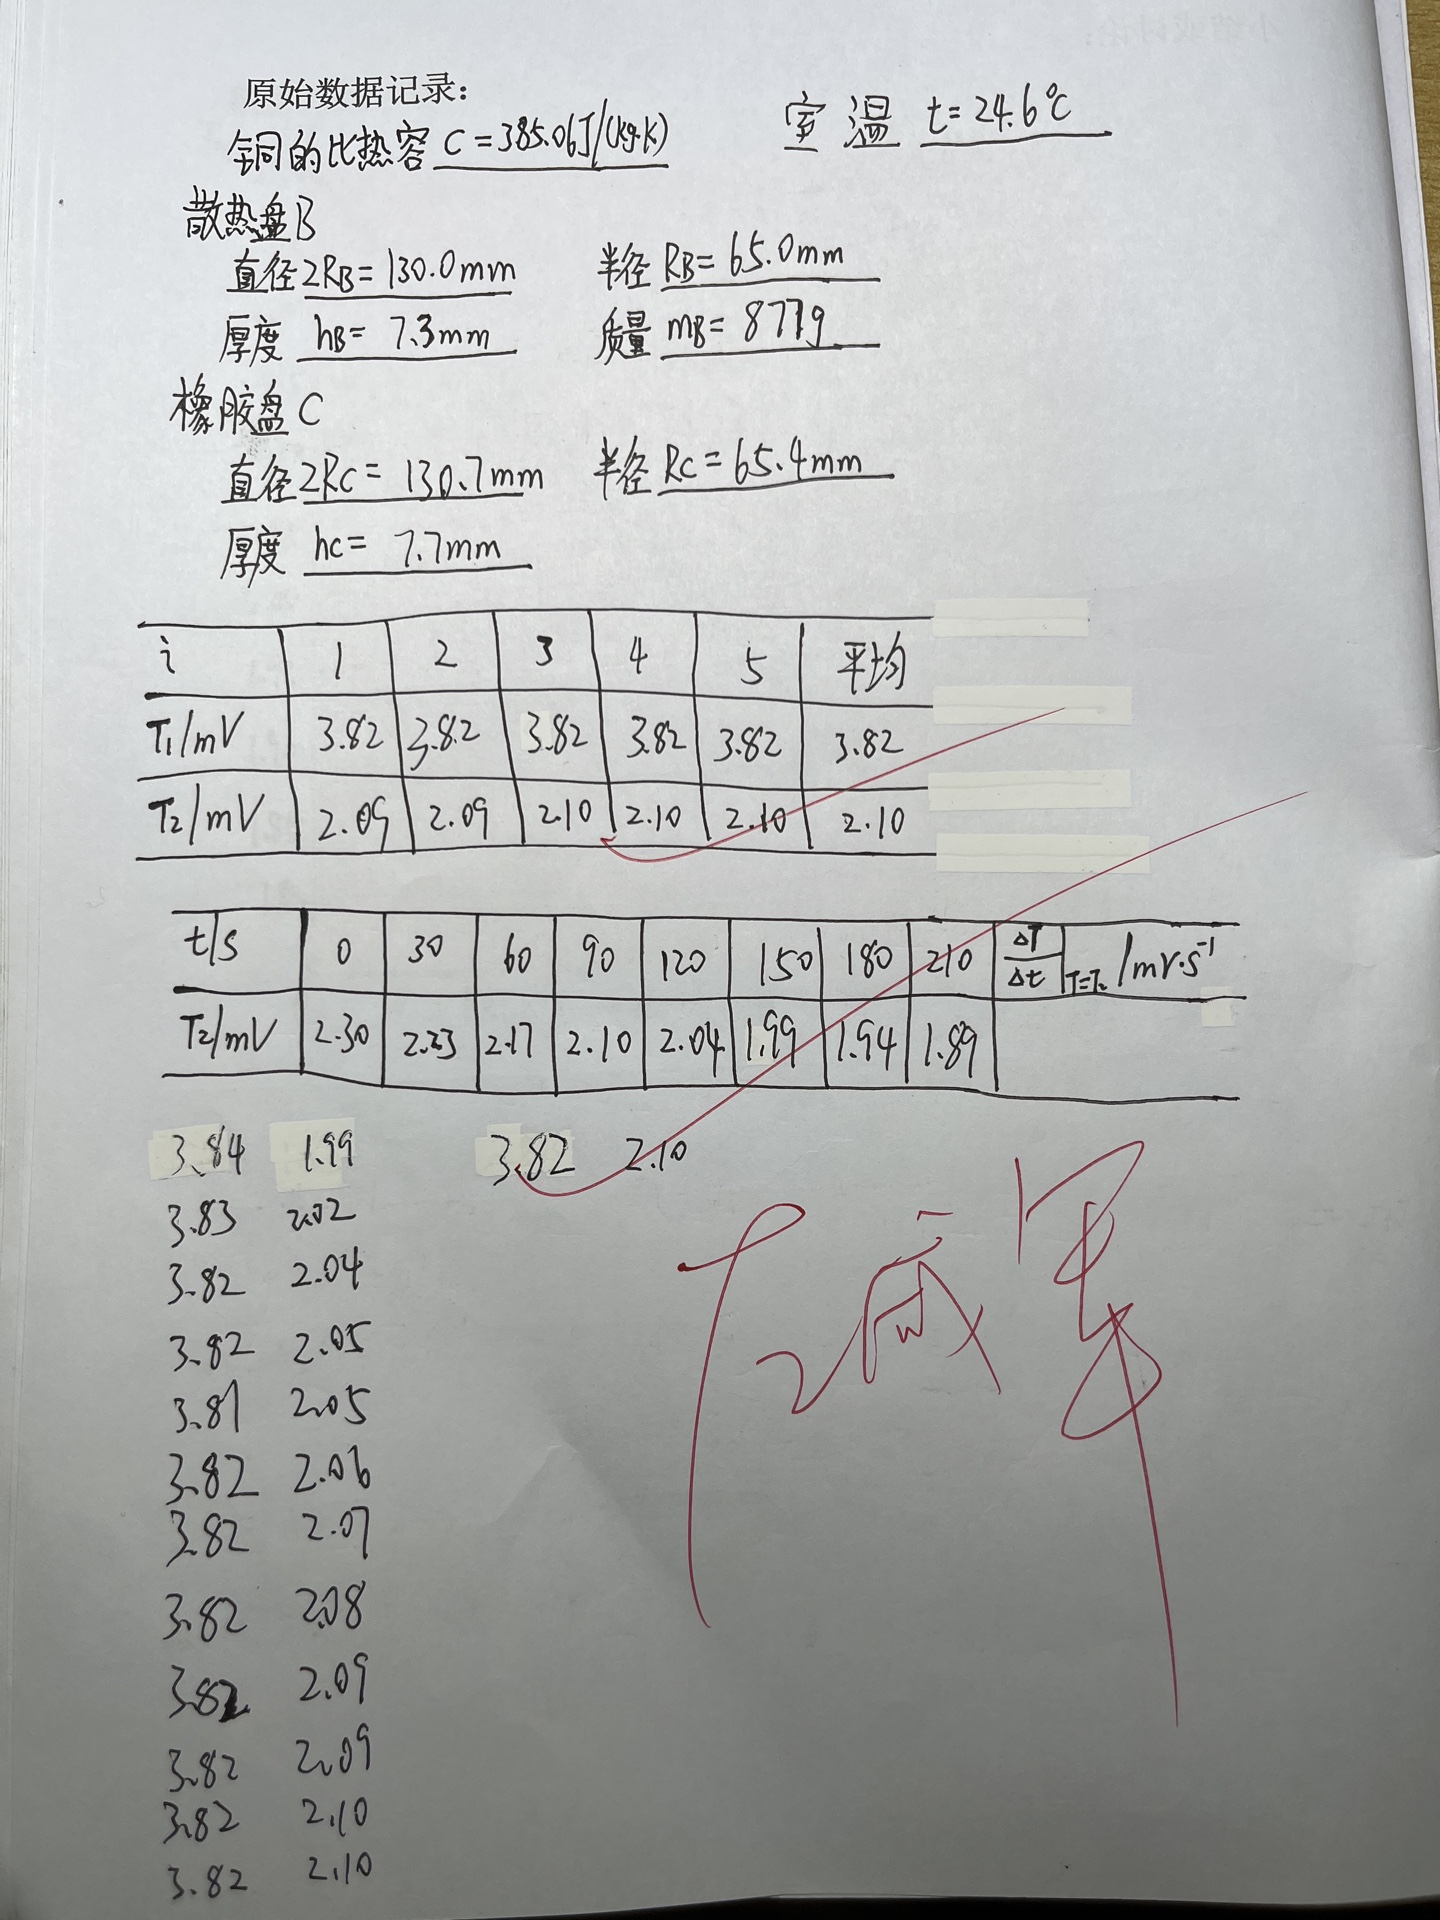 原始数据记录：
铜的比热容 C=385.06J/(kg·K) 室温 t=24.6℃
散热盘B
直径2RB=130.0mm 半径 RB=65.0mm
厚度 hB= 7.3mm 质量 mB= 877g
橡胶盘C
直径2RC= 130.7mm 半径 RC=65.4mm
厚度 hc= 7.7mm
i 1 2 3 4 5 平均
T1/mV 3.82 3.82 3.82 3.82 3.82 3.82
T2/mV 2.09 2.09 2.10 2.10 2.10 2.10
t/s 0 30 60 90 120 150 180 210 ΔT/Δt|T=T2 /mV·s⁻¹
T2/mV 2.30 2.23 2.17 2.10 2.04 1.99 1.94 1.89
3.84 1.99 3.82 2.10
3.83 2.02
3.82 2.04
3.82 2.05
3.81 2.05
3.82 2.06
3.82 2.07
3.82 2.08
3.82 2.09
3.82 2.09
3.82 2.10
3.82 2.10